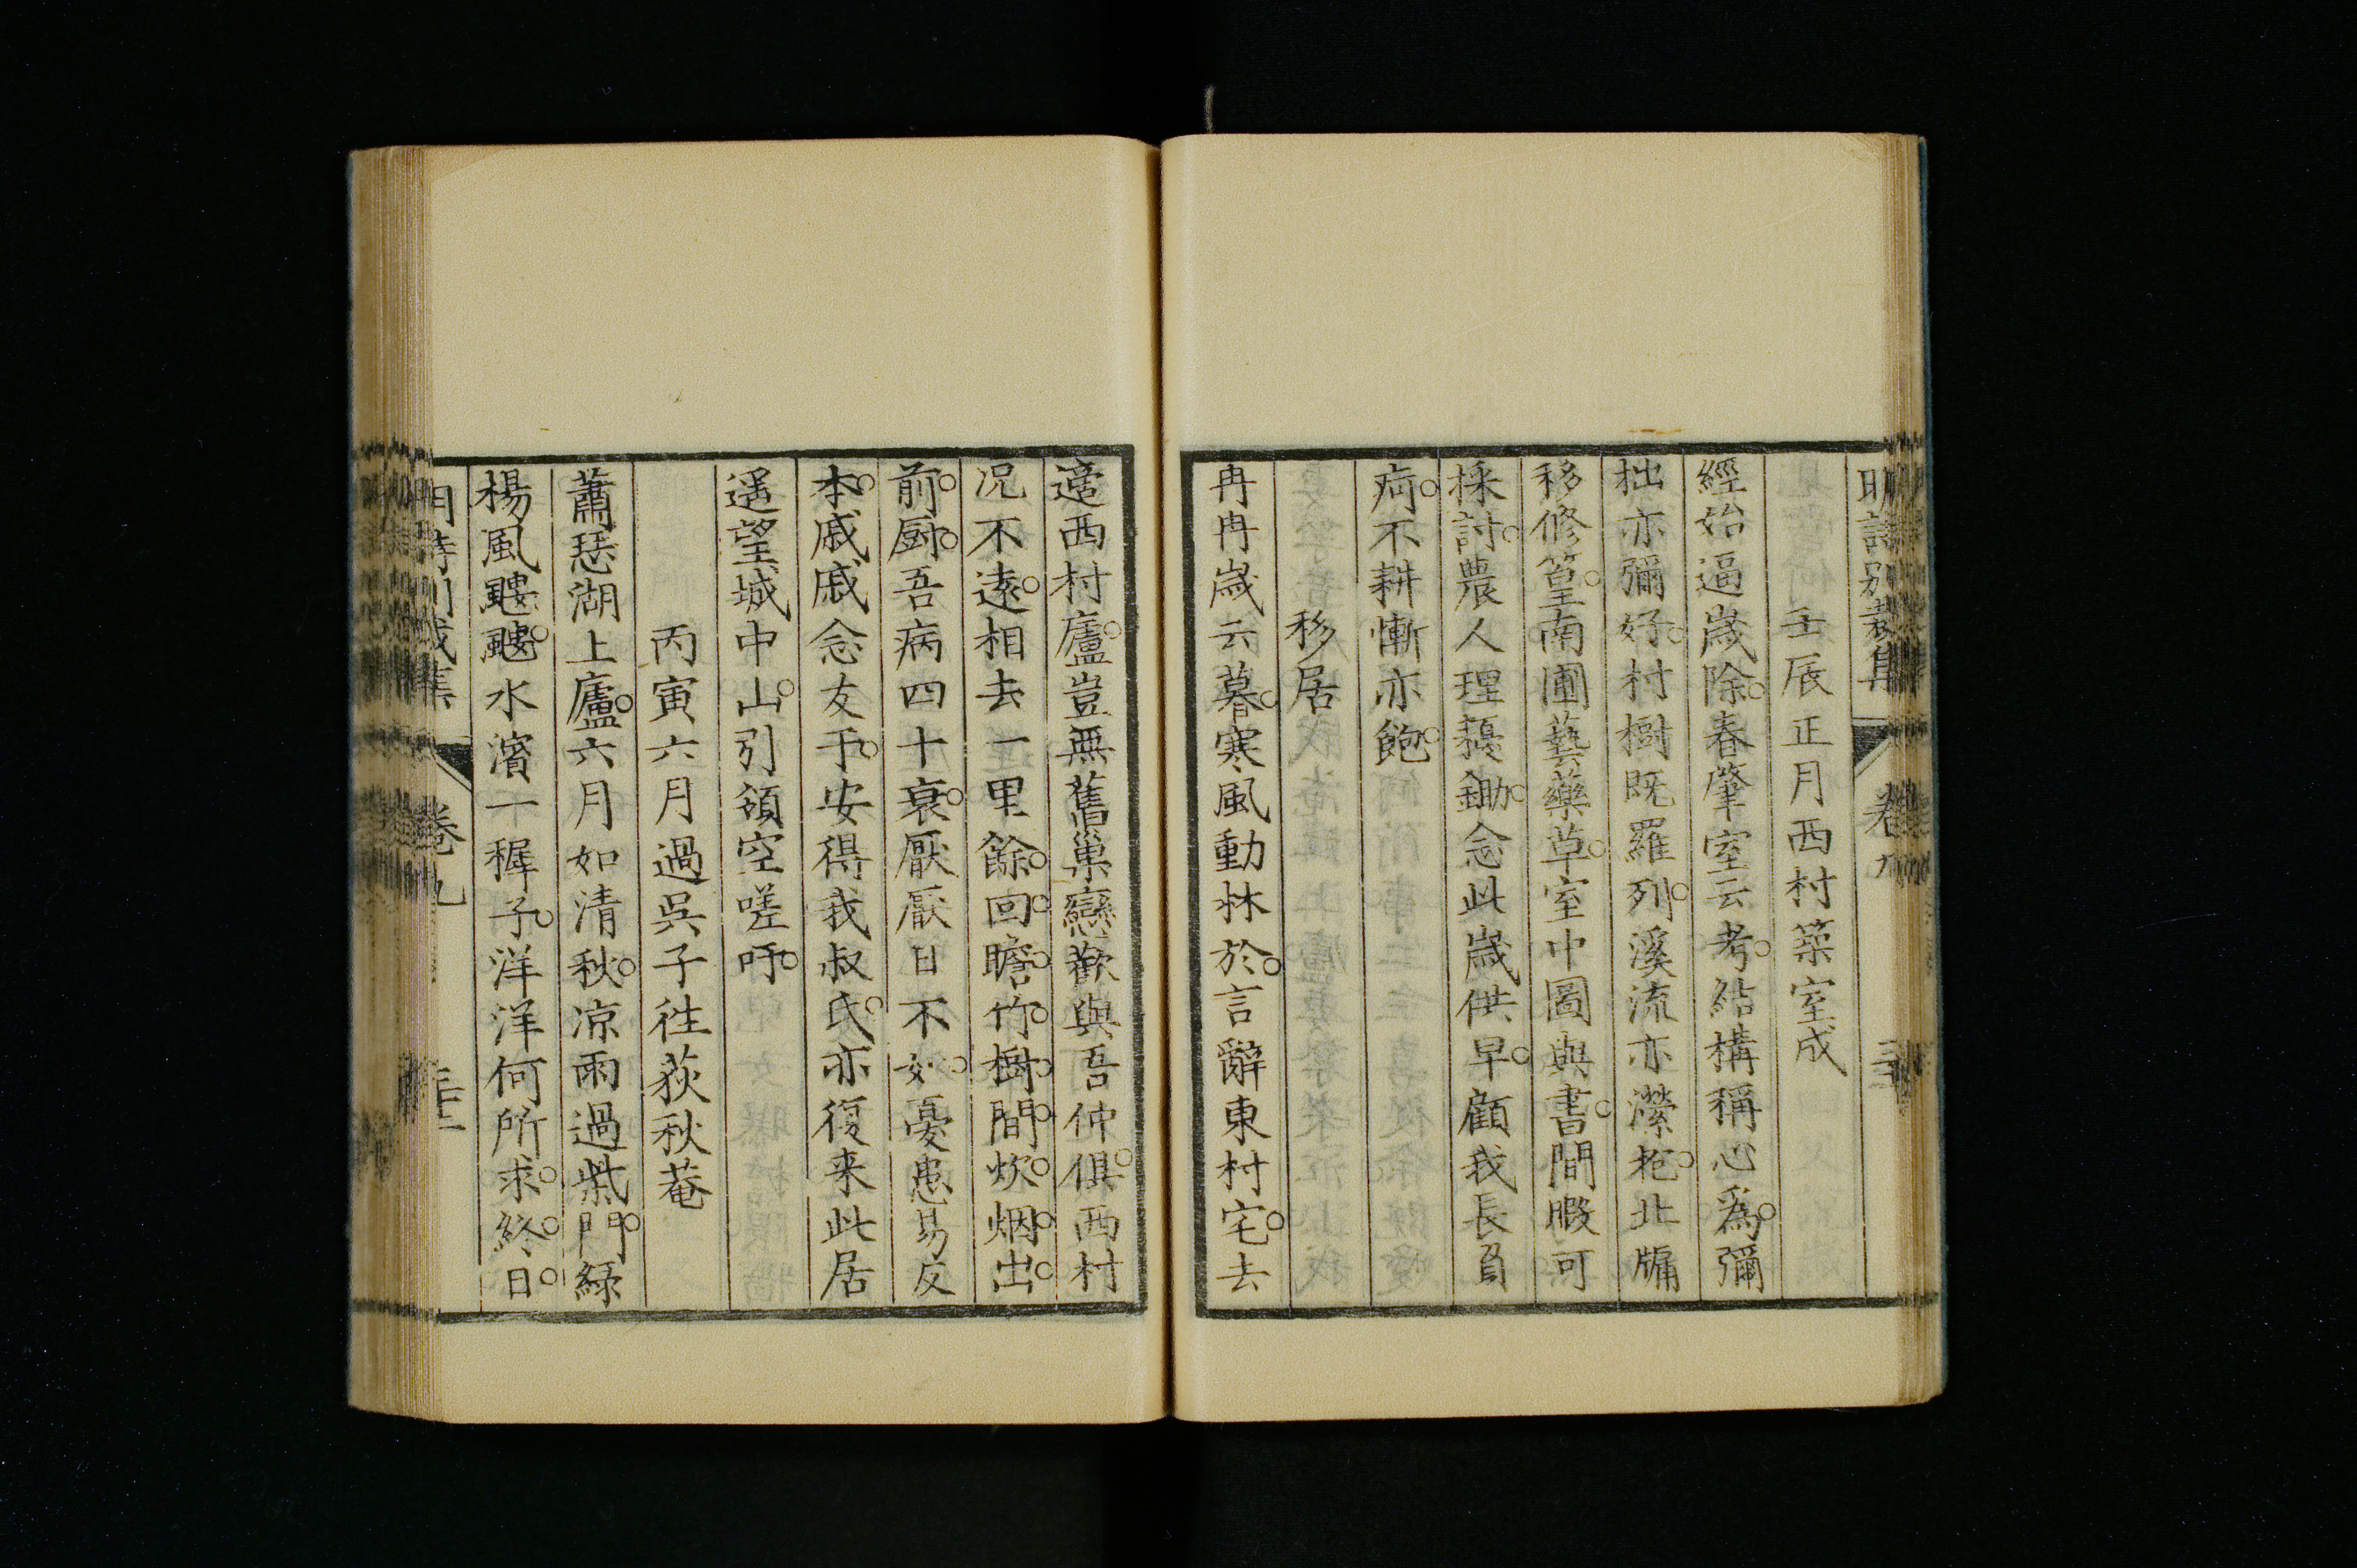 明詩別裁集 卷九
壬辰正月西村築室成
經始逼歲除。春肇室云考。結構稱心爲。彌
拙亦彌好。村樹既羅列。溪流亦瀠抱。北牖
移修篁。南圃藝藥草。室中圖與書。間暇可
採討。農人理耰鋤。念此歲供早。顧我長負
疴。不耕慚亦飽。
移居
冉冉歲云暮。寒風動林於。言辭東村宅。去
適西村廬。豈無舊巢戀。歡與吾仲俱。西村
况不遠。相去一里餘。回瞻竹樹間。炊烟出
前厨。吾病四十衰。厭厭日不如。憂患易反
本。戚戚念友于。安得我叔氏。亦復来此居
遥望城中山。引領空嗟呼。
丙寅六月過吳子往荻秋菴
蕭瑟湖上廬。六月如清秋。凉雨過柴門。綠
楊風飂飂。水濱一穉子。洋洋何所求。終日。
卷九